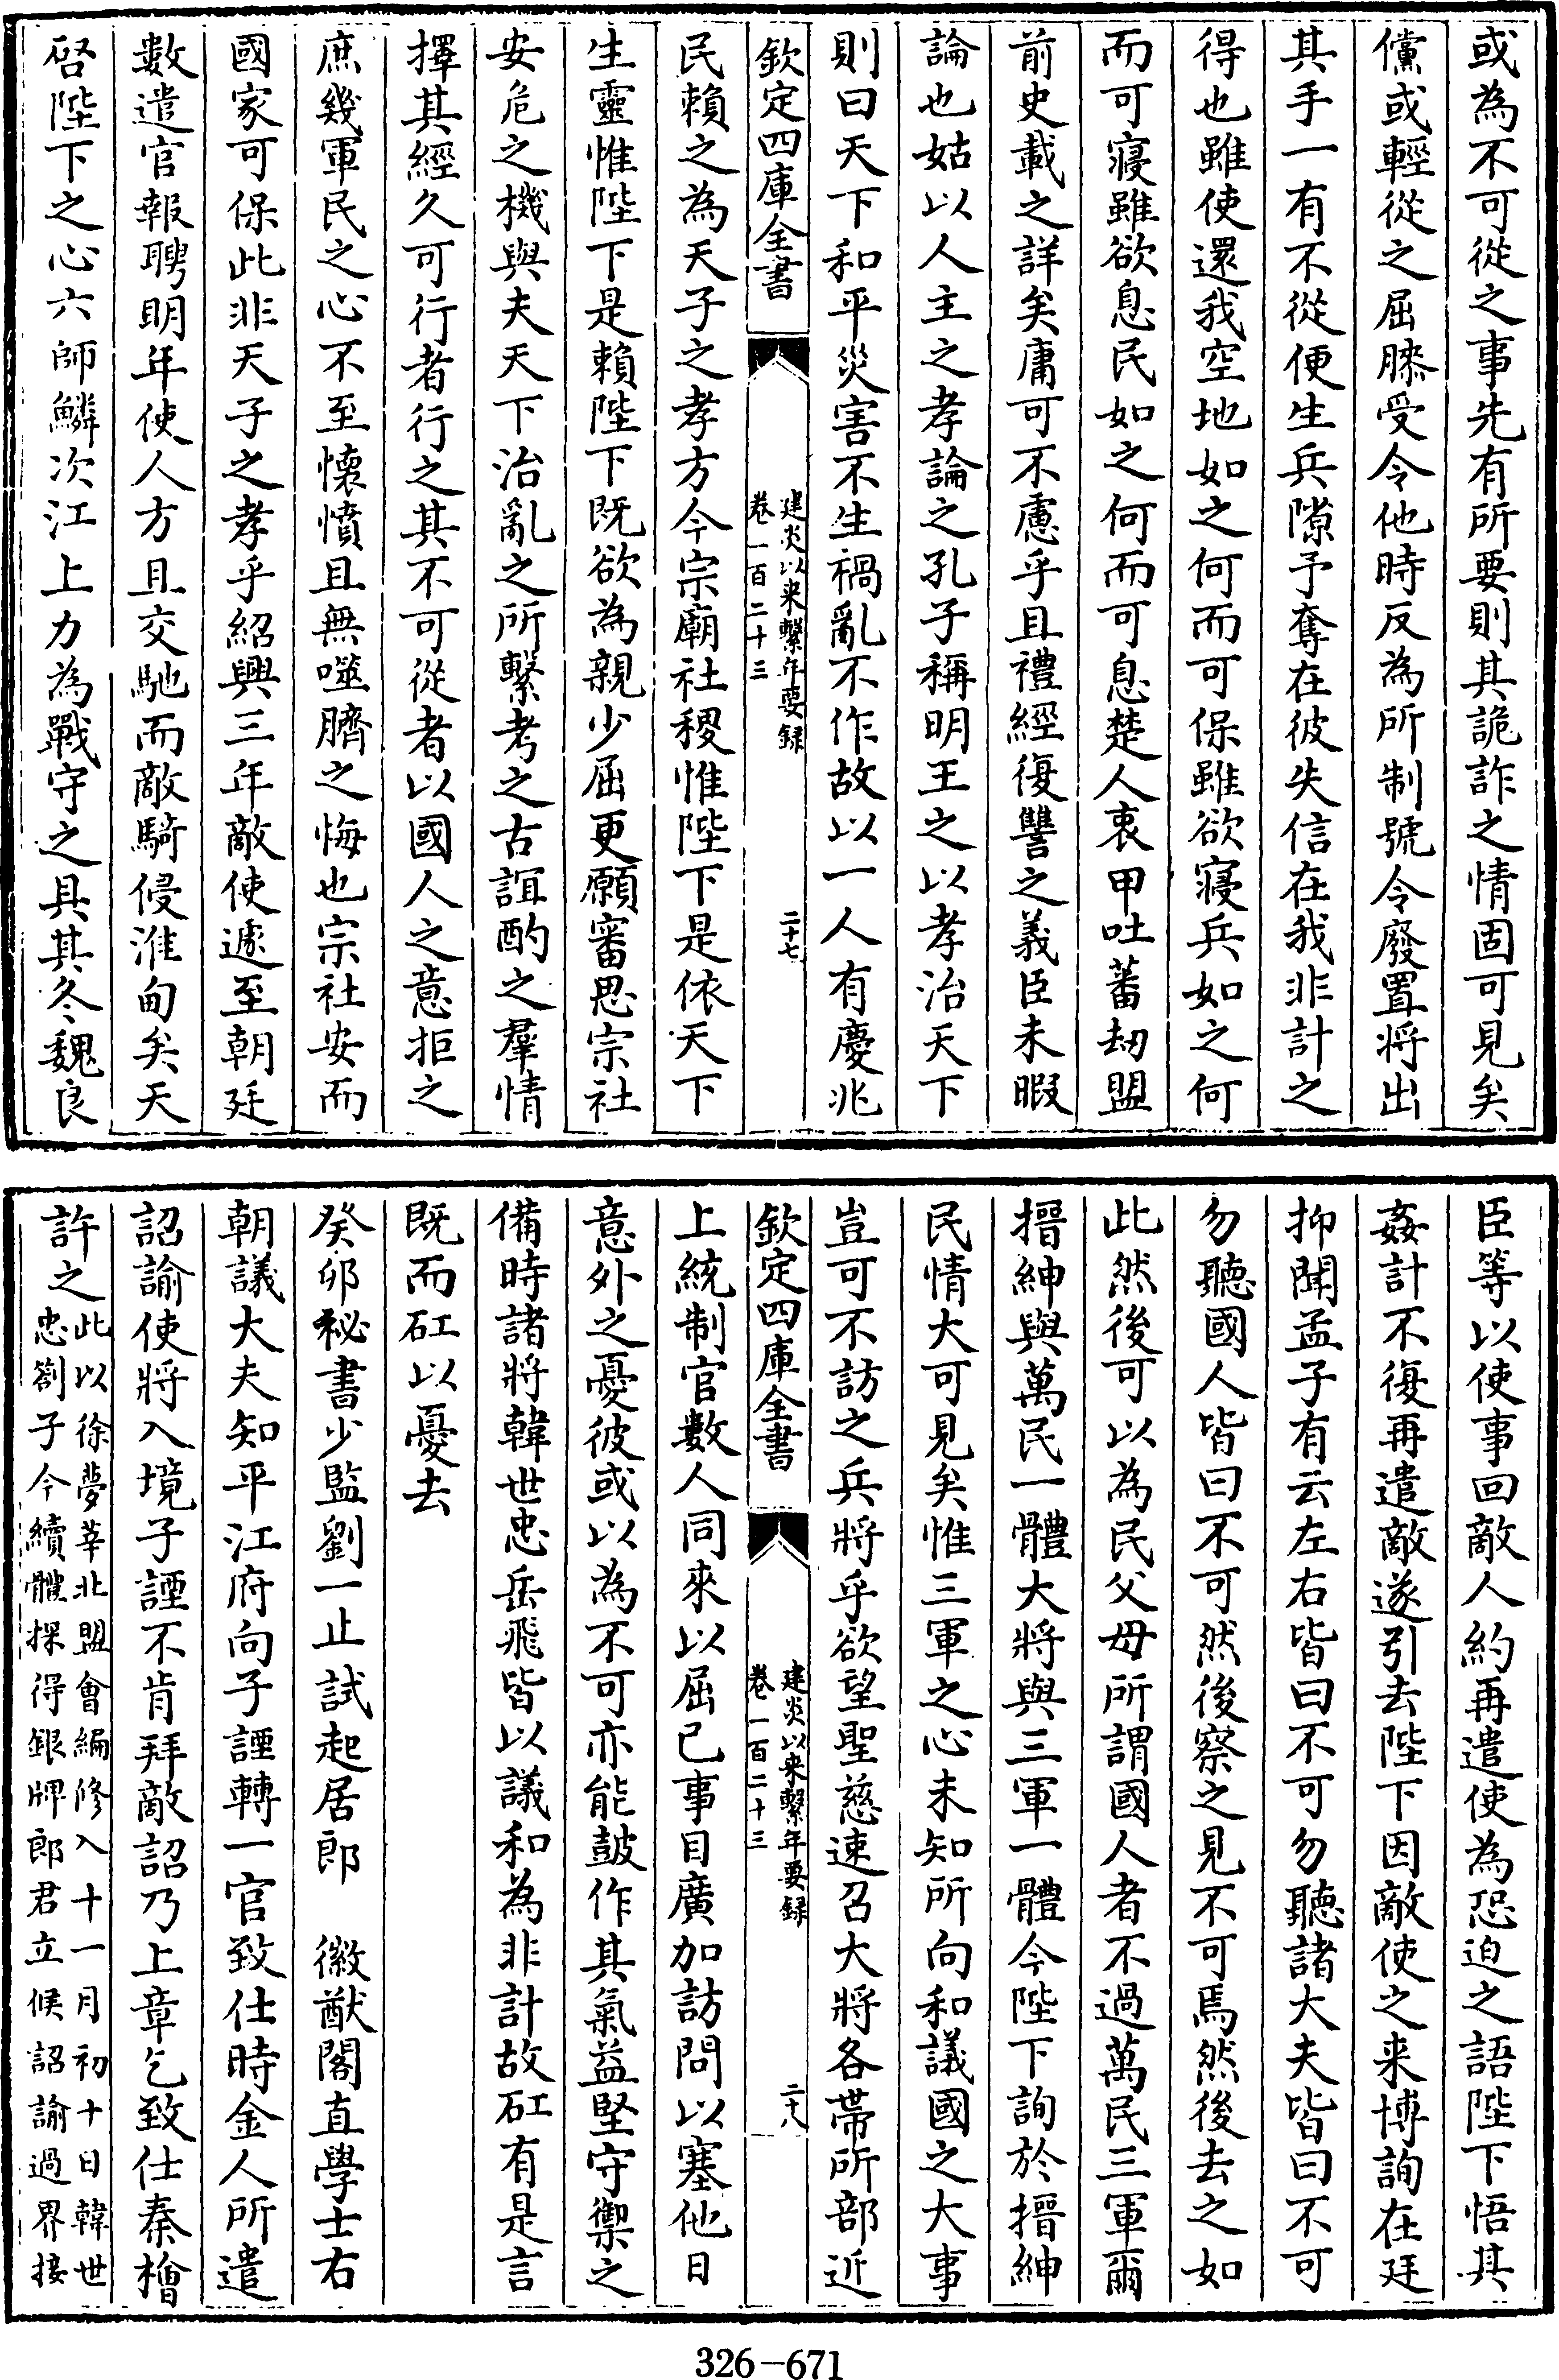 或為不可從之事先有所要則其詭詐之情固可見矣
儻或輕從之屈膝受令他時反為所制號令廢置將出
其手一有不從便生兵隙予奪在彼失信在我非計之
得也雖使還我空地如之何而可保雖欲寢兵如之何
而可寢雖欲息民如之何而可息楚人衷甲吐蕃劫盟
前史載之詳矣庸可不慮乎且禮經復讐之義臣未暇
論也姑以人主之孝論之孔子稱明王之以孝治天下
則曰天下和平災害不生禍亂不作故以一人有慶兆
欽定四庫全書
建炎以来繫年要録
卷一百二十三
二十七
民賴之為天子之孝方今宗廟社稷惟陛下是依天下
生靈惟陛下是賴陛下既欲為親少屈更願審思宗社
安危之機與夫天下治亂之所繫考之古誼酌之羣情
擇其經久可行者行之其不可從者以國人之意拒之
庶幾軍民之心不至懷憤且無噬臍之悔也宗社安而
國家可保此非天子之孝乎紹興三年敵使遽至朝廷
數遣官報聘明年使人方且交馳而敵騎侵淮甸矣天
啓陛下之心六師鱗次江上力為戰守之具其冬魏良
臣等以使事回敵人約再遣使為恐迫之語陛下悟其
姦計不復再遣敵遂引去陛下因敵使之来博詢在廷
抑聞孟子有云左右皆曰不可勿聽諸大夫皆曰不可
勿聽國人皆曰不可然後察之見不可焉然後去之如
此然後可以為民父母所謂國人者不過萬民三軍爾
搢紳與萬民一體大將與三軍一體今陛下詢於搢紳
民情大可見矣惟三軍之心未知所向和議國之大事
豈可不訪之兵將乎欲望聖慈速召大將各帶所部近
欽定四庫全書
建炎以来繫年要録
卷一百二十三
二十八
上統制官數人同來以屈己事目廣加訪問以塞他日
意外之憂彼或以為不可亦能鼓作其氣益堅守禦之
備時諸將韓世忠岳飛皆以議和為非計故矼有是言
既而矼以憂去
癸卯秘書少監劉一止試起居郎　徽猷閣直學士右
朝議大夫知平江府向子諲轉一官致仕時金人所遣
詔諭使將入境子諲不肯拜敵詔乃上章乞致仕秦檜
許之
此以徐夢莘北盟會編修入十一月初十日韓世
忠劄子今續體探得銀牌郎君立候詔諭過界接
326-671